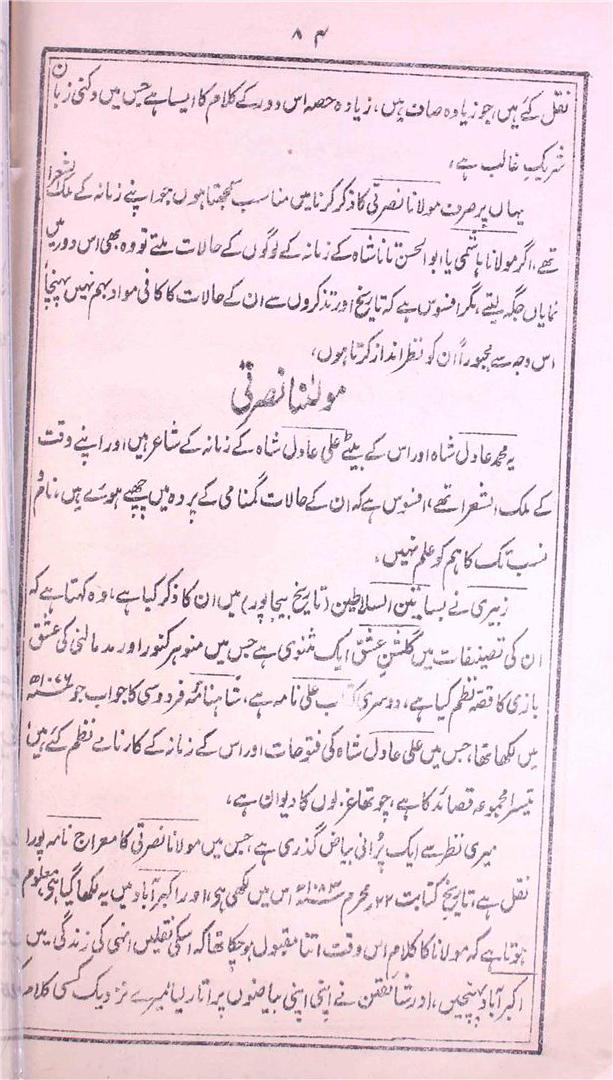 ۸۴
نقل کئے ہیں، جو زیادہ صاف ہیں، زیادہ حصہ اس دور کے کلام کا ایسا ہے جس میں دکنی زبان
شریک غالب ہے،
یہاں پر صرف مولانا نصرتی کا ذکر کرنا میں مناسب سمجھتا ہوں جو اپنے زمانہ کے ملک الشعرا
تھے، اگر مولانا ہاشمی یا ابوالحسن تاناشاہ کے زمانہ کے لوگوں کے حالات ملتے تو وہ بھی اس دور میں
نمایاں جگہ لیتے، مگر افسوس ہے کہ تاریخ اور تذکروں سے ان کے حالات کا کافی مواد بہم نہیں پہنچتا
اس وجہ سے مجبوراً ان کو نظر انداز کرتا ہوں،
مولٰنا نصرتی
یہ محمد عادل شاہ اور اس کے بیٹے علی عادل شاہ کے زمانہ کے شاعر ہیں اور اپنے وقت
کے ملک الشعرا تھے، افسوس ہے کہ ان کے حالات گمنامی کے پردہ میں چھپے ہوئے ہیں، نام و
نسب تک کا ہم کو علم نہیں،
زبیری نے بساتین السلاطین (تاریخ بیجاپور) میں ان کا ذکر کیا ہے، وہ کہتا ہے کہ
ان کی تصنیفات میں گلشن عشق ایک مثنوی ہے جس میں منوہر کنور اور مدمالتی کی عشق
بازی کا قصہ نظم کیا ہے، دوسری کتاب علی نامہ ہے، شاہنامہ فردوسی کا جواب جو ۱۰۷۶ھ
میں لکھا تھا، جس میں علی عادل شاہ کی فتوحات اور اس کے زمانہ کے کارنامے نظم کئے ہیں
تیسرا مجموعہ قصائد کا ہے، چوتھا غزلوں کا دیوان ہے،
میری نظر سے ایک پُرانی بیاض گذری ہے، جس میں مولانا نصرتی کا معراج نامہ پورا
نقل ہے، تاریخ کتابت ۲۲ محرم ۱۰۸۳ھ اس میں لکھی ہی، اور اکبرآباد میں یہ لکھا گیا ہی، معلوم
ہوتا ہے کہ مولانا کا کلام اس وقت اتنا مقبول ہوچکا تھا کہ اسکی نقلیں انہی کی زندگی میں
اکبرآباد پہنچیں، اور شائقین نے اپنی اپنی بیاضوں پر اتار لیا، میرے نزدیک کسی کلام کے